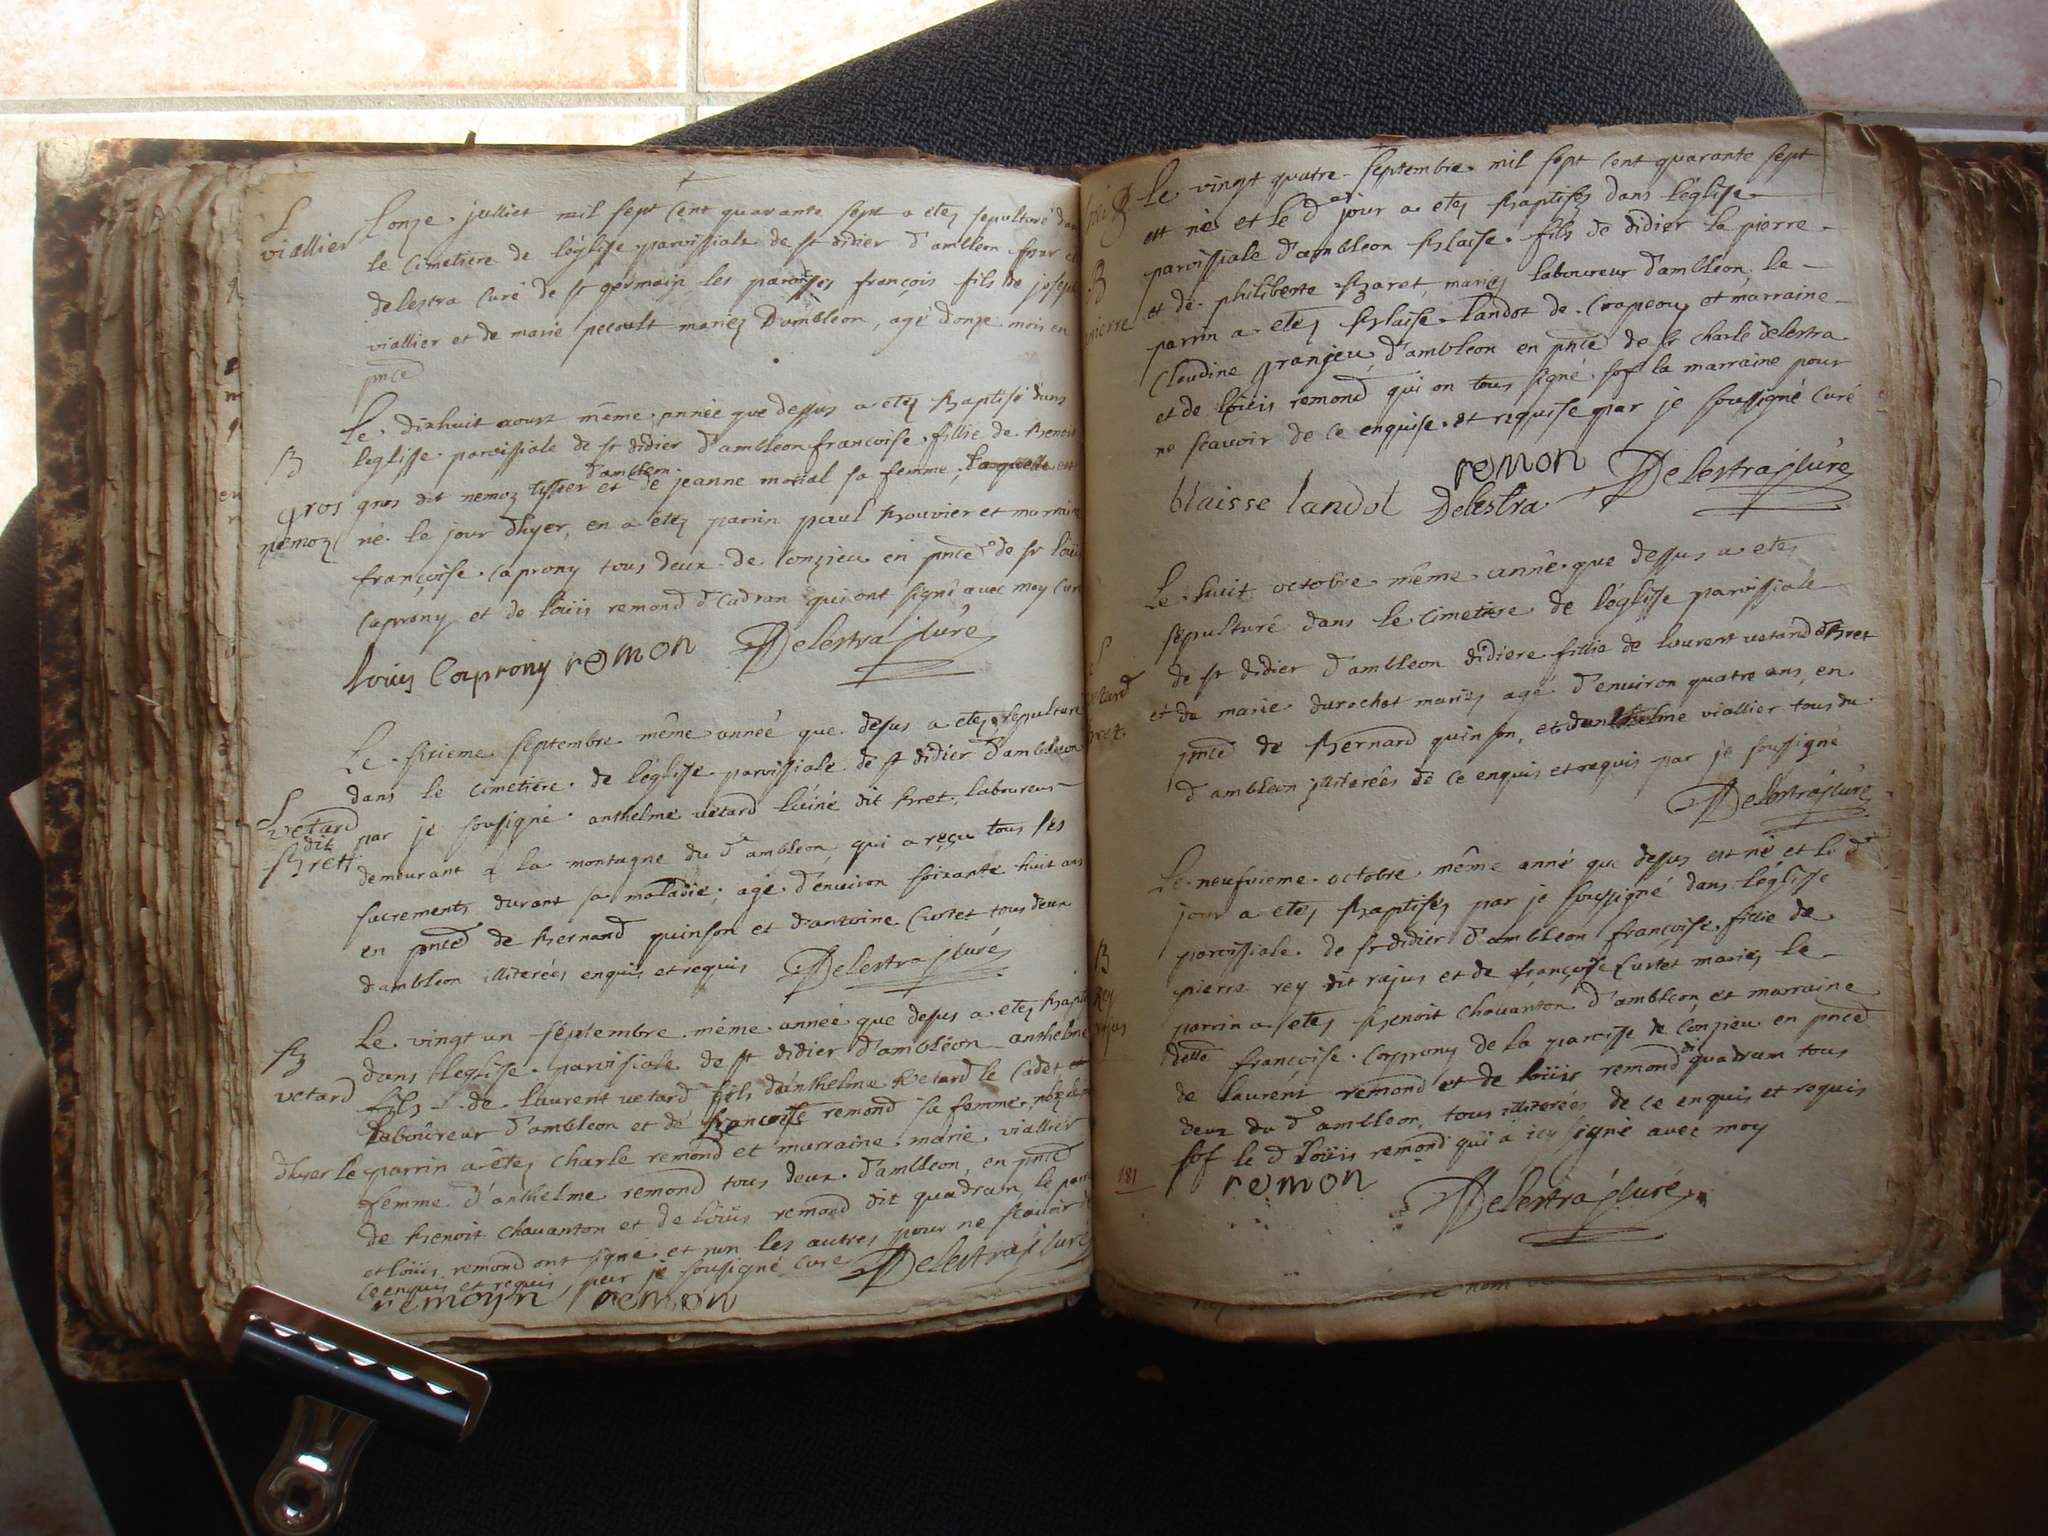 S
viallier
Lonze julliet mil sept cent quarante sept a etez sepulturé dans
le cimetiere de léglisse paroissiale de st didier d'ambléon par
delestra curé de st germain les paroisses françois fils de joseph
viallier et de marie pecoult mariez D'ambléon, agé d'onze mois en
pnce
B
gros
nemoz
Le dixhuit aoust même année que dessus a etez baptisé dans
léglisse paroissiale de st didier d'ambleon francoise fillie de benoit
gros dit nemoz tissier d'ambleon et de jeanne morial sa femme, laquelle est
né le jour d'hyer, en a etez parrin paul bouvier et marraine
françoise caprony tous deux de Conzieu en pnce de sr loüis
caprony et de loüis remond d Cadran qui ont signé avec moy curé
louis Caprony remon Delestra jcuré
S
vetard
dit
brett
Le sixieme septembre même année que desus a etez sepulturé
dans le cimetiere de léglisse paroissiale de st didier d'ambleon
par je sousigné anthelme vetard láiné dit bret, laboureur
demeurant a la montagne du d ambleon, qui a reçu tous ses
sacrements durant sa maladie, agé d'environ soixante huit ans
en pnce de bernard quinson et d'antoine Curtet tous deux
d'ambleon illiterées enquis et requis Delestra jcuré
B
vetard
Le vingt un septembre même année que desus a etez bapti
dans leglisse paroissiale de st didier d'ambléon anthelme
fils de laurent vetard fils d'anthelme vetard le Cadet
laboûreur d'ambleon et de françoise remond sa femme,
d'hyer le parrin a êtez charle remond et marraine marie viallier
femme d'anthelme remond tous deux d'ambleon, en pnce
de benoit chavanton et de loüis remond dit quadran, le parrin
et loüis remond ont signe et non les autres pour ne scavoir de
ce enquis et requis par je sousigné curé Delestra jcuré
remoyn remon
B
pierre
Le vingt quatre septembre mil sept cent quarante sept
est né et le d jour a etez baptisez dans léglise
paroissiale d'ambleon blaise fils de didier la pierre
et de philiberte baret, mariez laboureur d'ambleon, le
parrin a etez blaise landot de Crapeou et marraine
Claudine granjeu d'ambleon en pnce de sr charle delestra
et de loüis remond qui on tous signé sof la marraine pour
ne scavoir de ce enquise et requise par je soussigné curé
remon
blaisse landot Delestra Delestra jcuré
S
vetard
bret
Le huit octobre même anné que dessus a etez
sépulturé dans le cimetiere de léglisse paroissiale
de st didier d'ambleon didiere fillie de laurent vetard d bret
et de marie durochat mariez agé d'environ quatre ans, en
pnce de bernard quinson, et danthelme viallier tous du
d ambleon illiterées de ce enquis et requis par je soussigné
Delestra jcuré
B
Rey
rajus
Le neufvieme octobre même anné que dessus est né et le d
jour a etez baptisez par je soussigné dans léglisse
paroissiale de st didier d'ambleon françoise fillie de
pierre rey dit rajus et de françoise Curtet mariez le
parrin a etez benoit chavanton d'ambleon, et marraine
delle françoise Caprony de la paroisse de Conzieu en pnce
de laurent remond et de loüis remond di quadram tous
deux du d ambleon, tous illiterées de ce enquis et requis
sof le d loüis remond qui à icy signé avec moy
181
remon
Delestra jcuré